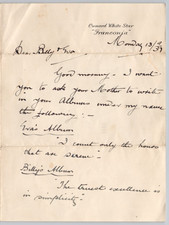 Cunard White Star
"Franconia"
Monday 13/2/39
Dear Betty & Eva
Good morning - I want
you to ask your Mother to write
in your Albums under my name
the following :-
Eva's Album
"I count only the hours
that are serene"
Betty's Album
"The truest excellence is
in simplicity"